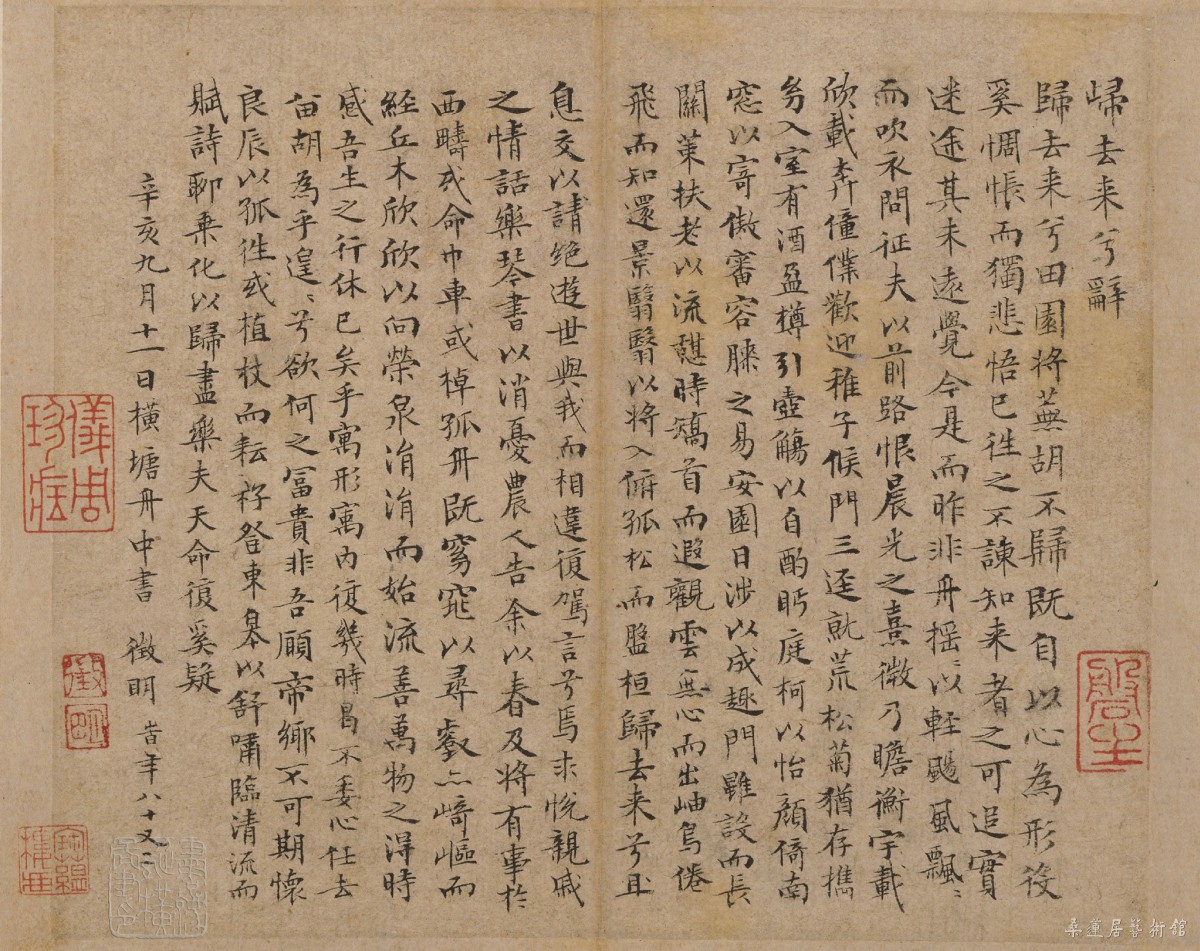 歸去来兮辭
歸去来兮田園将蕪胡不歸既自以心為形役
奚惆悵而獨悲悟已往之不諫知来者之可追實
迷途其未遠覺今是而昨非舟摇〻以輕颺風飄〻
而吹衣問征夫以前路恨晨光之熹微乃瞻衡宇載
欣載奔僮僕歡迎稚子候門三逕就荒松菊猶存携
㓜入室有酒盈樽引壺觴以自酌眄庭柯以怡顔倚南
窓以寄傲審容膝之易安園日涉以成趣門雖設而長
關策扶老以流憩時矯首而遐觀雲無心而出岫鳥倦
飛而知還景翳翳以将入俯孤松而盤桓歸去来兮且
息交以請絶遊世與我而相違復駕言兮焉求悅親戚
之情話樂琴書以消憂農人告余以春及将有事於
西疇或命巾車或棹孤舟既窈窕以尋壑亦崎嶇而
經丘木欣欣以向榮泉涓涓而始流善萬物之得時
感吾生之行休已矣乎寓形寓內復幾時曷不委心任去
留胡為乎遑〻兮欲何之冨貴非吾願帝鄉不可期懷
良辰以孤往或植杖而耘耔登東皋以舒嘯臨清流而
賦詩聊乘化以歸盡樂夫天命復奚疑
辛亥九月十一日橫塘舟中書 徵明 昔年八十又二
徵
明
桑蓮居藝術館